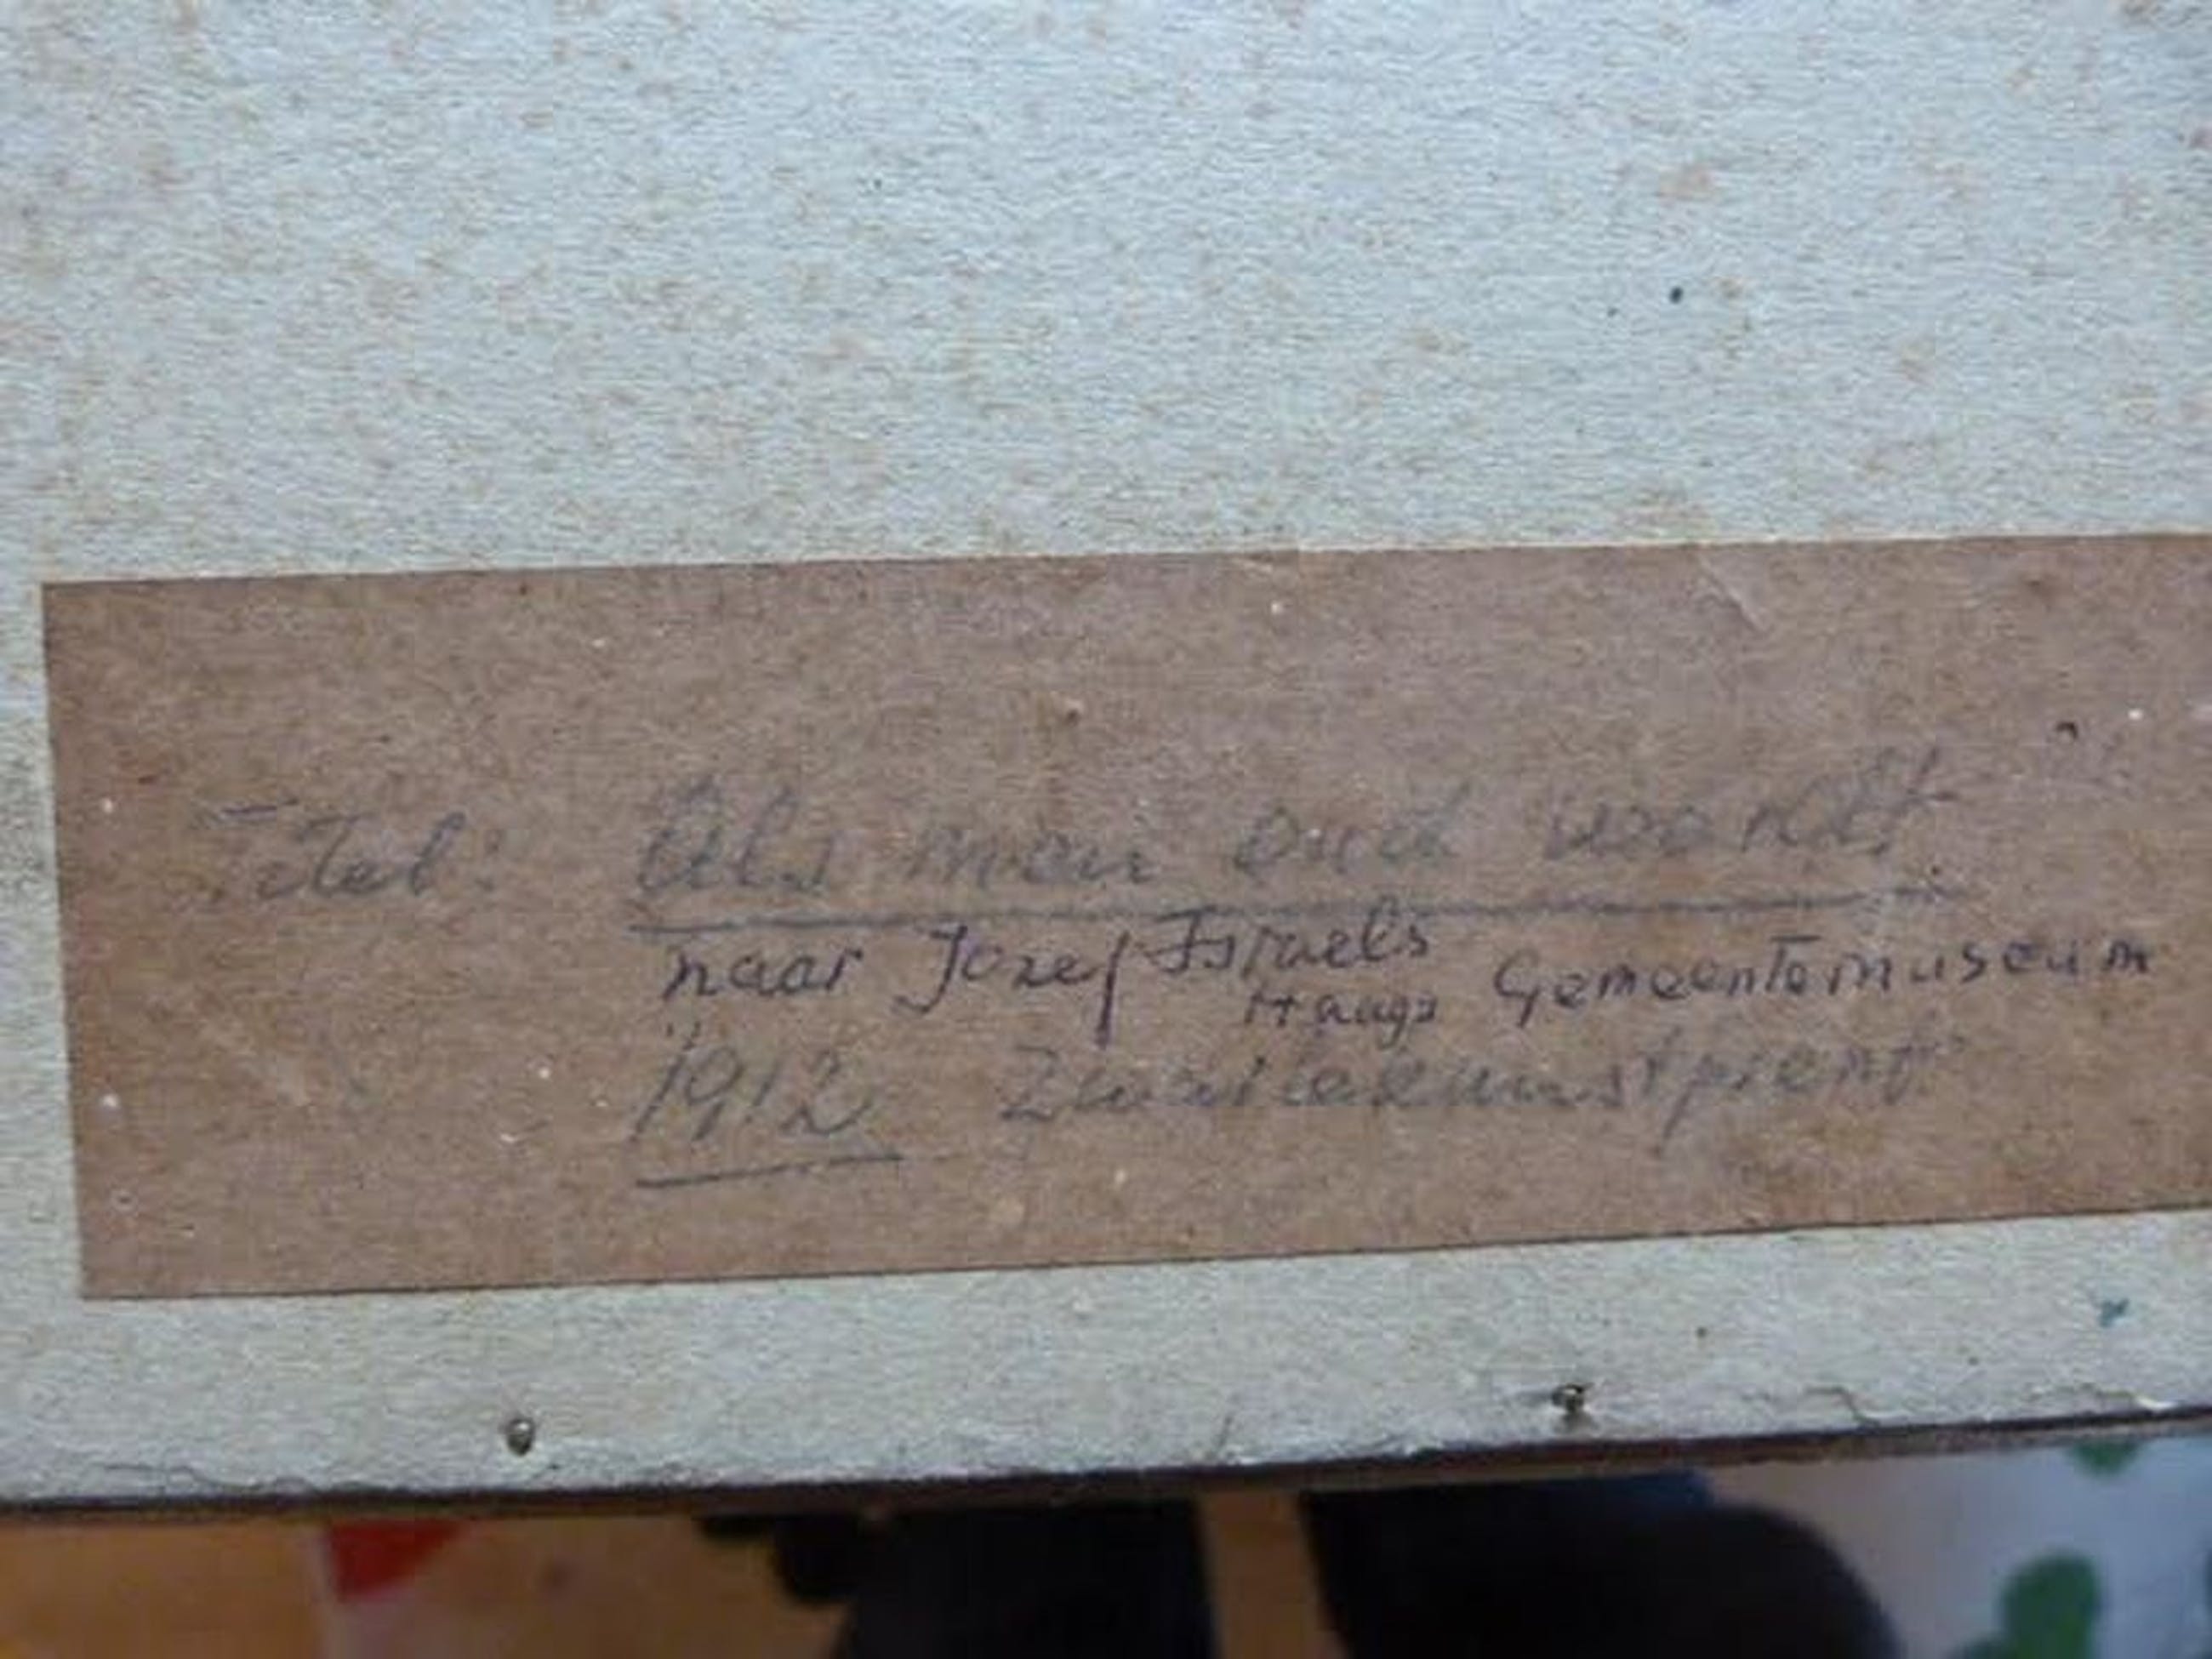 Titel: Als men oud wordt
naar Jozef Israels
Haags Gemeentemuseum
1912